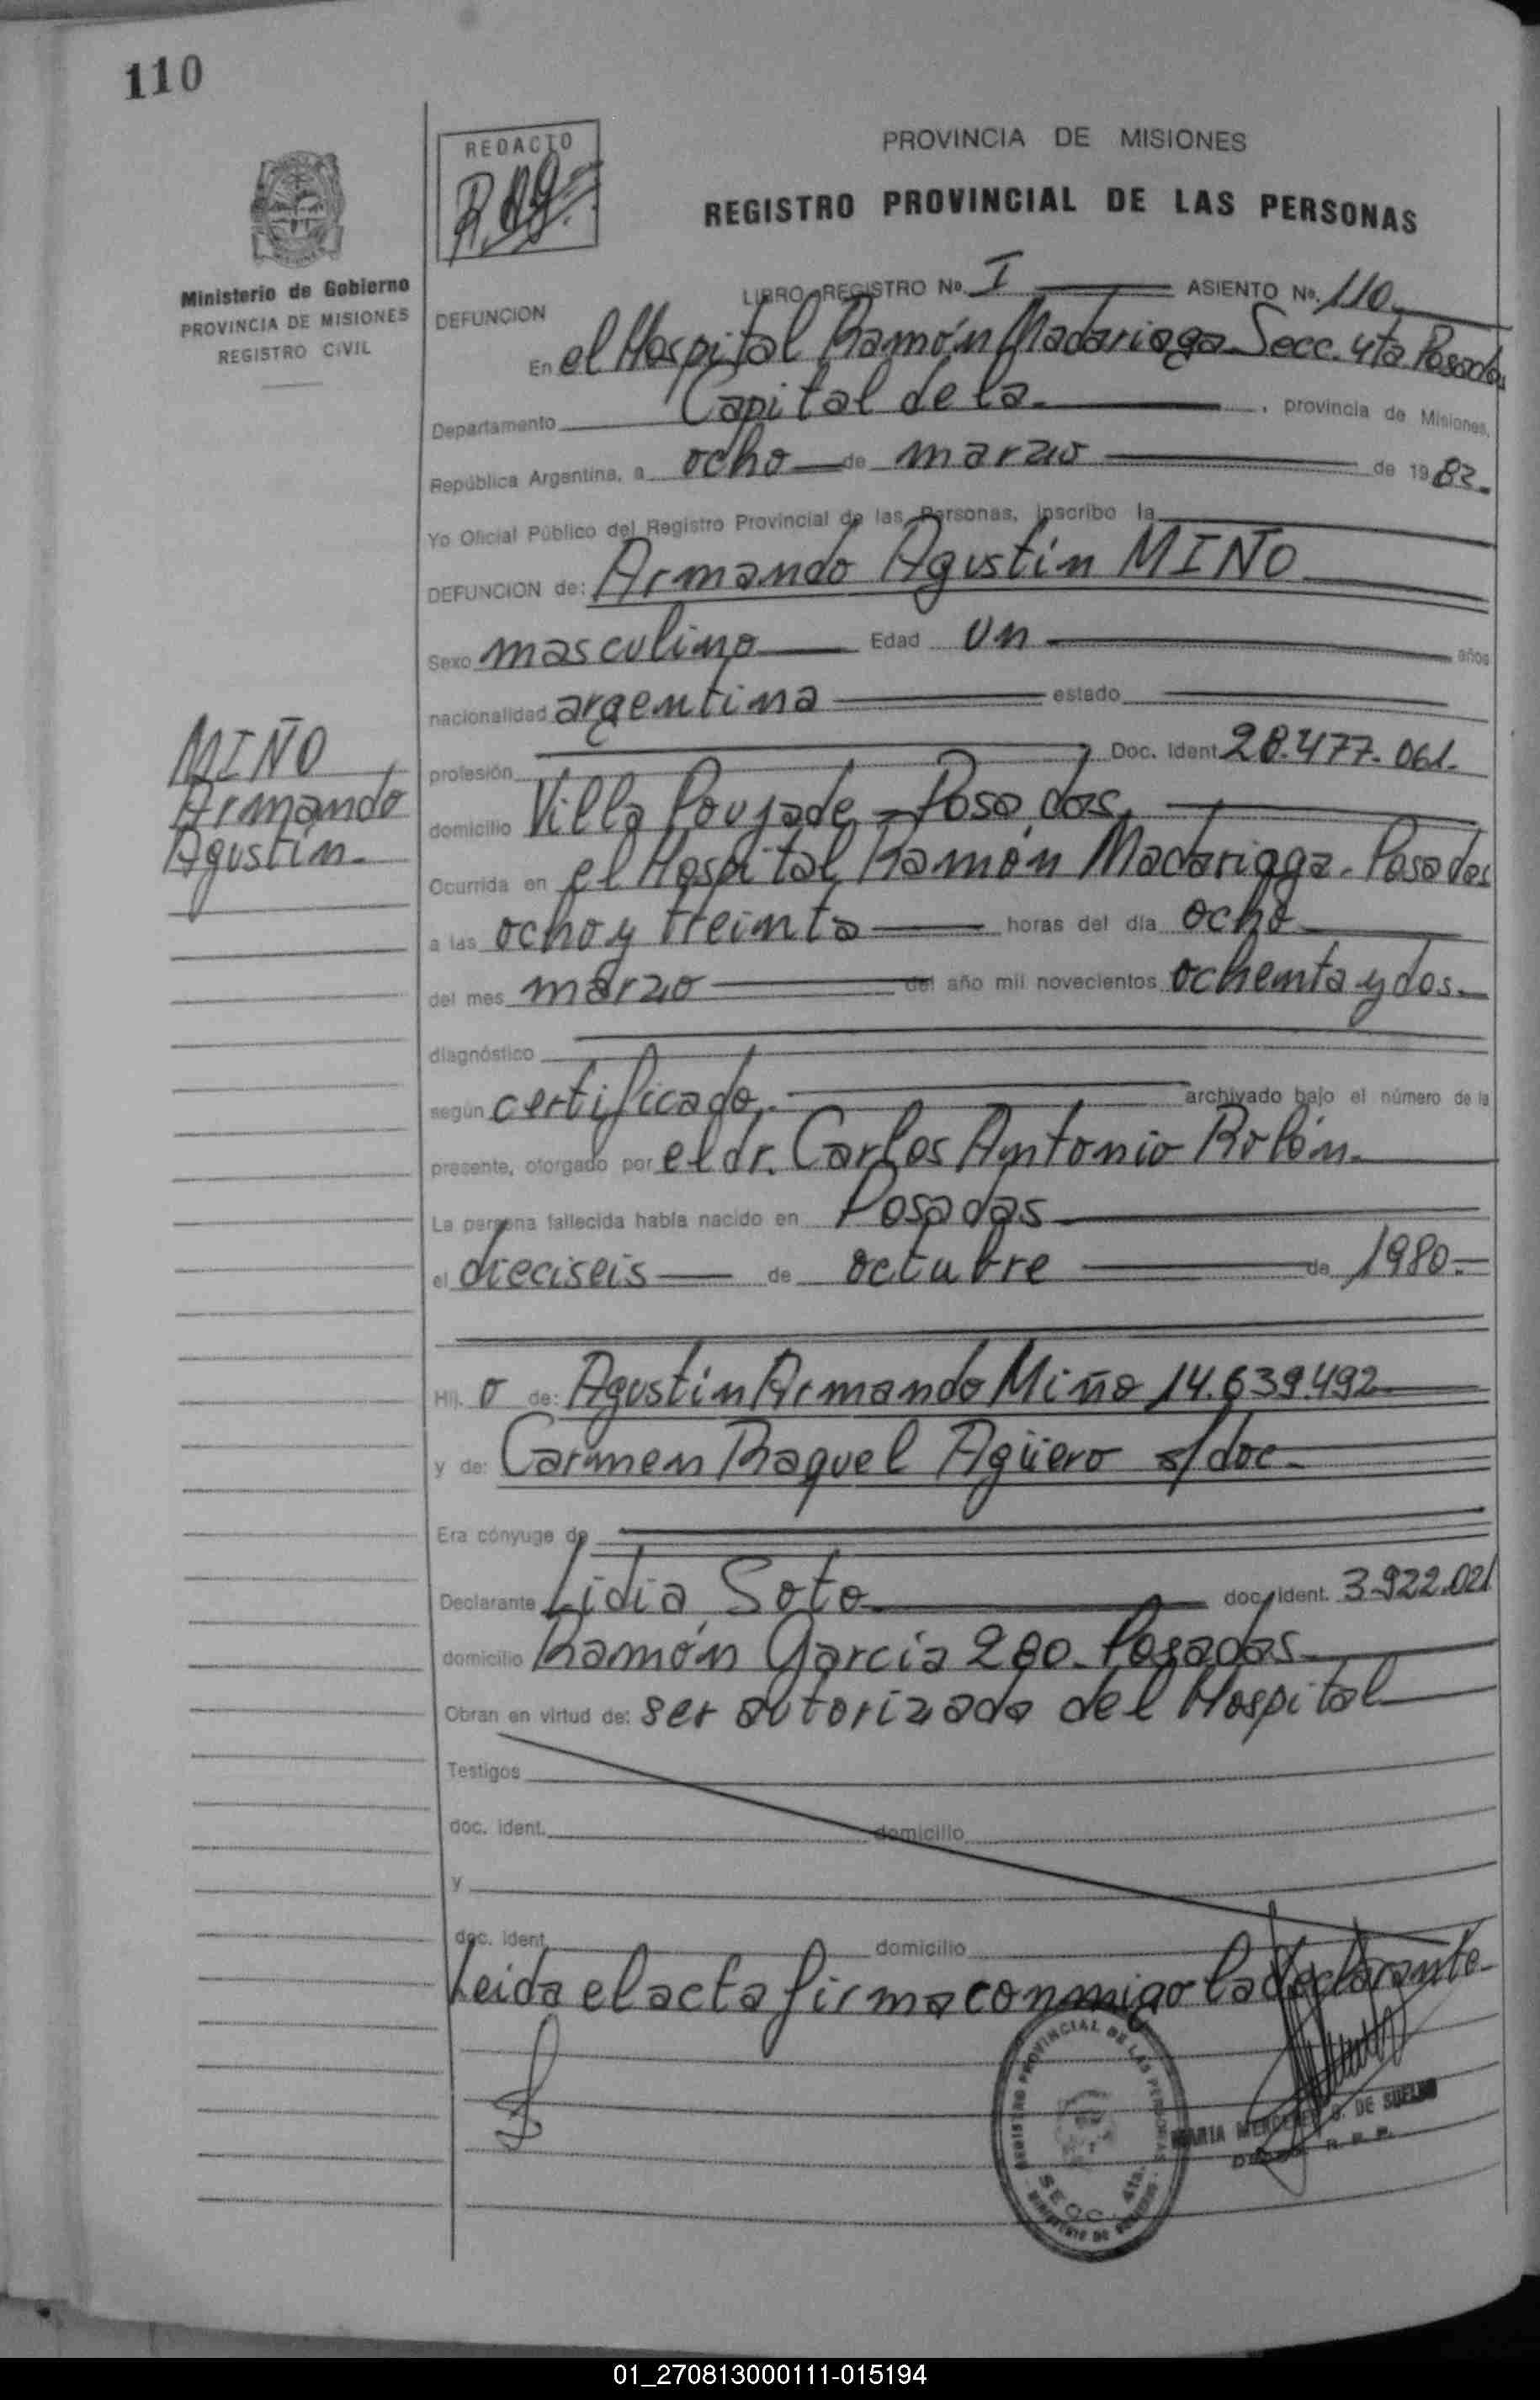 110
REDACTO
PROVINCIA DE MISIONES
REGISTRO PROVINCIAL DE LAS PERSONAS
Ministerio de Gobierno
PROVINCIA DE MISIONES
REGISTRO CIVIL
LIBRO REGISTRO No. I ASIENTO No. 110
DEFUNCION
En el Hospital Ramón Madariaga Secc. 4ta. Posadas
Departamento Capital de la , provincia de Misiones,
República Argentina, a ocho de marzo de 1982.
Yo Oficial Público del Registro Provincial de las Personas, inscribo la
DEFUNCION de: Armando Agustín MIÑO
Sexo masculino Edad un años
nacionalidad argentina estado
MIÑO
Armando
Agustín.
profesión Doc. Ident. 28.477.061.
domicilio Villa Poujade - Posadas
Ocurrida en el Hospital Ramón Madariaga - Posadas
a las ocho y treinta horas del día ocho
del mes marzo del año mil novecientos ochenta y dos.
diagnóstico
según certificado archivado bajo el número de la
presente, otorgado por el dr. Carlos Antonio Rolón.
La persona fallecida había nacido en Posadas
el dieciseis de octubre de 1980.
Hij. o de: Agustín Armando Miño 14.639.492
y de: Carmen Raquel Agüero s/doc.
Era cónyuge de
Declarante Lidia Soto doc. ident. 3.922.021
domicilio Ramón García 280. Posadas
Obran en virtud de: ser autorizada del Hospital
Testigos
doc. ident. domicilio
y
doc. ident. domicilio
Leida el acta firma conmigo la declarante
REGISTRO PROVINCIAL DE LAS PERSONAS
SECC. 4ta.
MARIA MERCEDES G. DE
R. P. P.
01_270813000111-015194